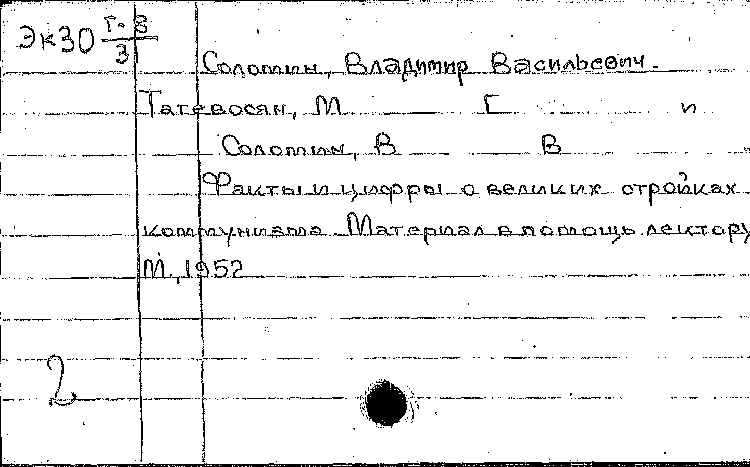 Эк30 Т-8
3
Солотин, Владимир Васильевич.
Татевосян, М Г и
Солотин, В В
Факты и цифры о великих стройках
коммунизма. Материал в помощь лектору
М., 1952
2